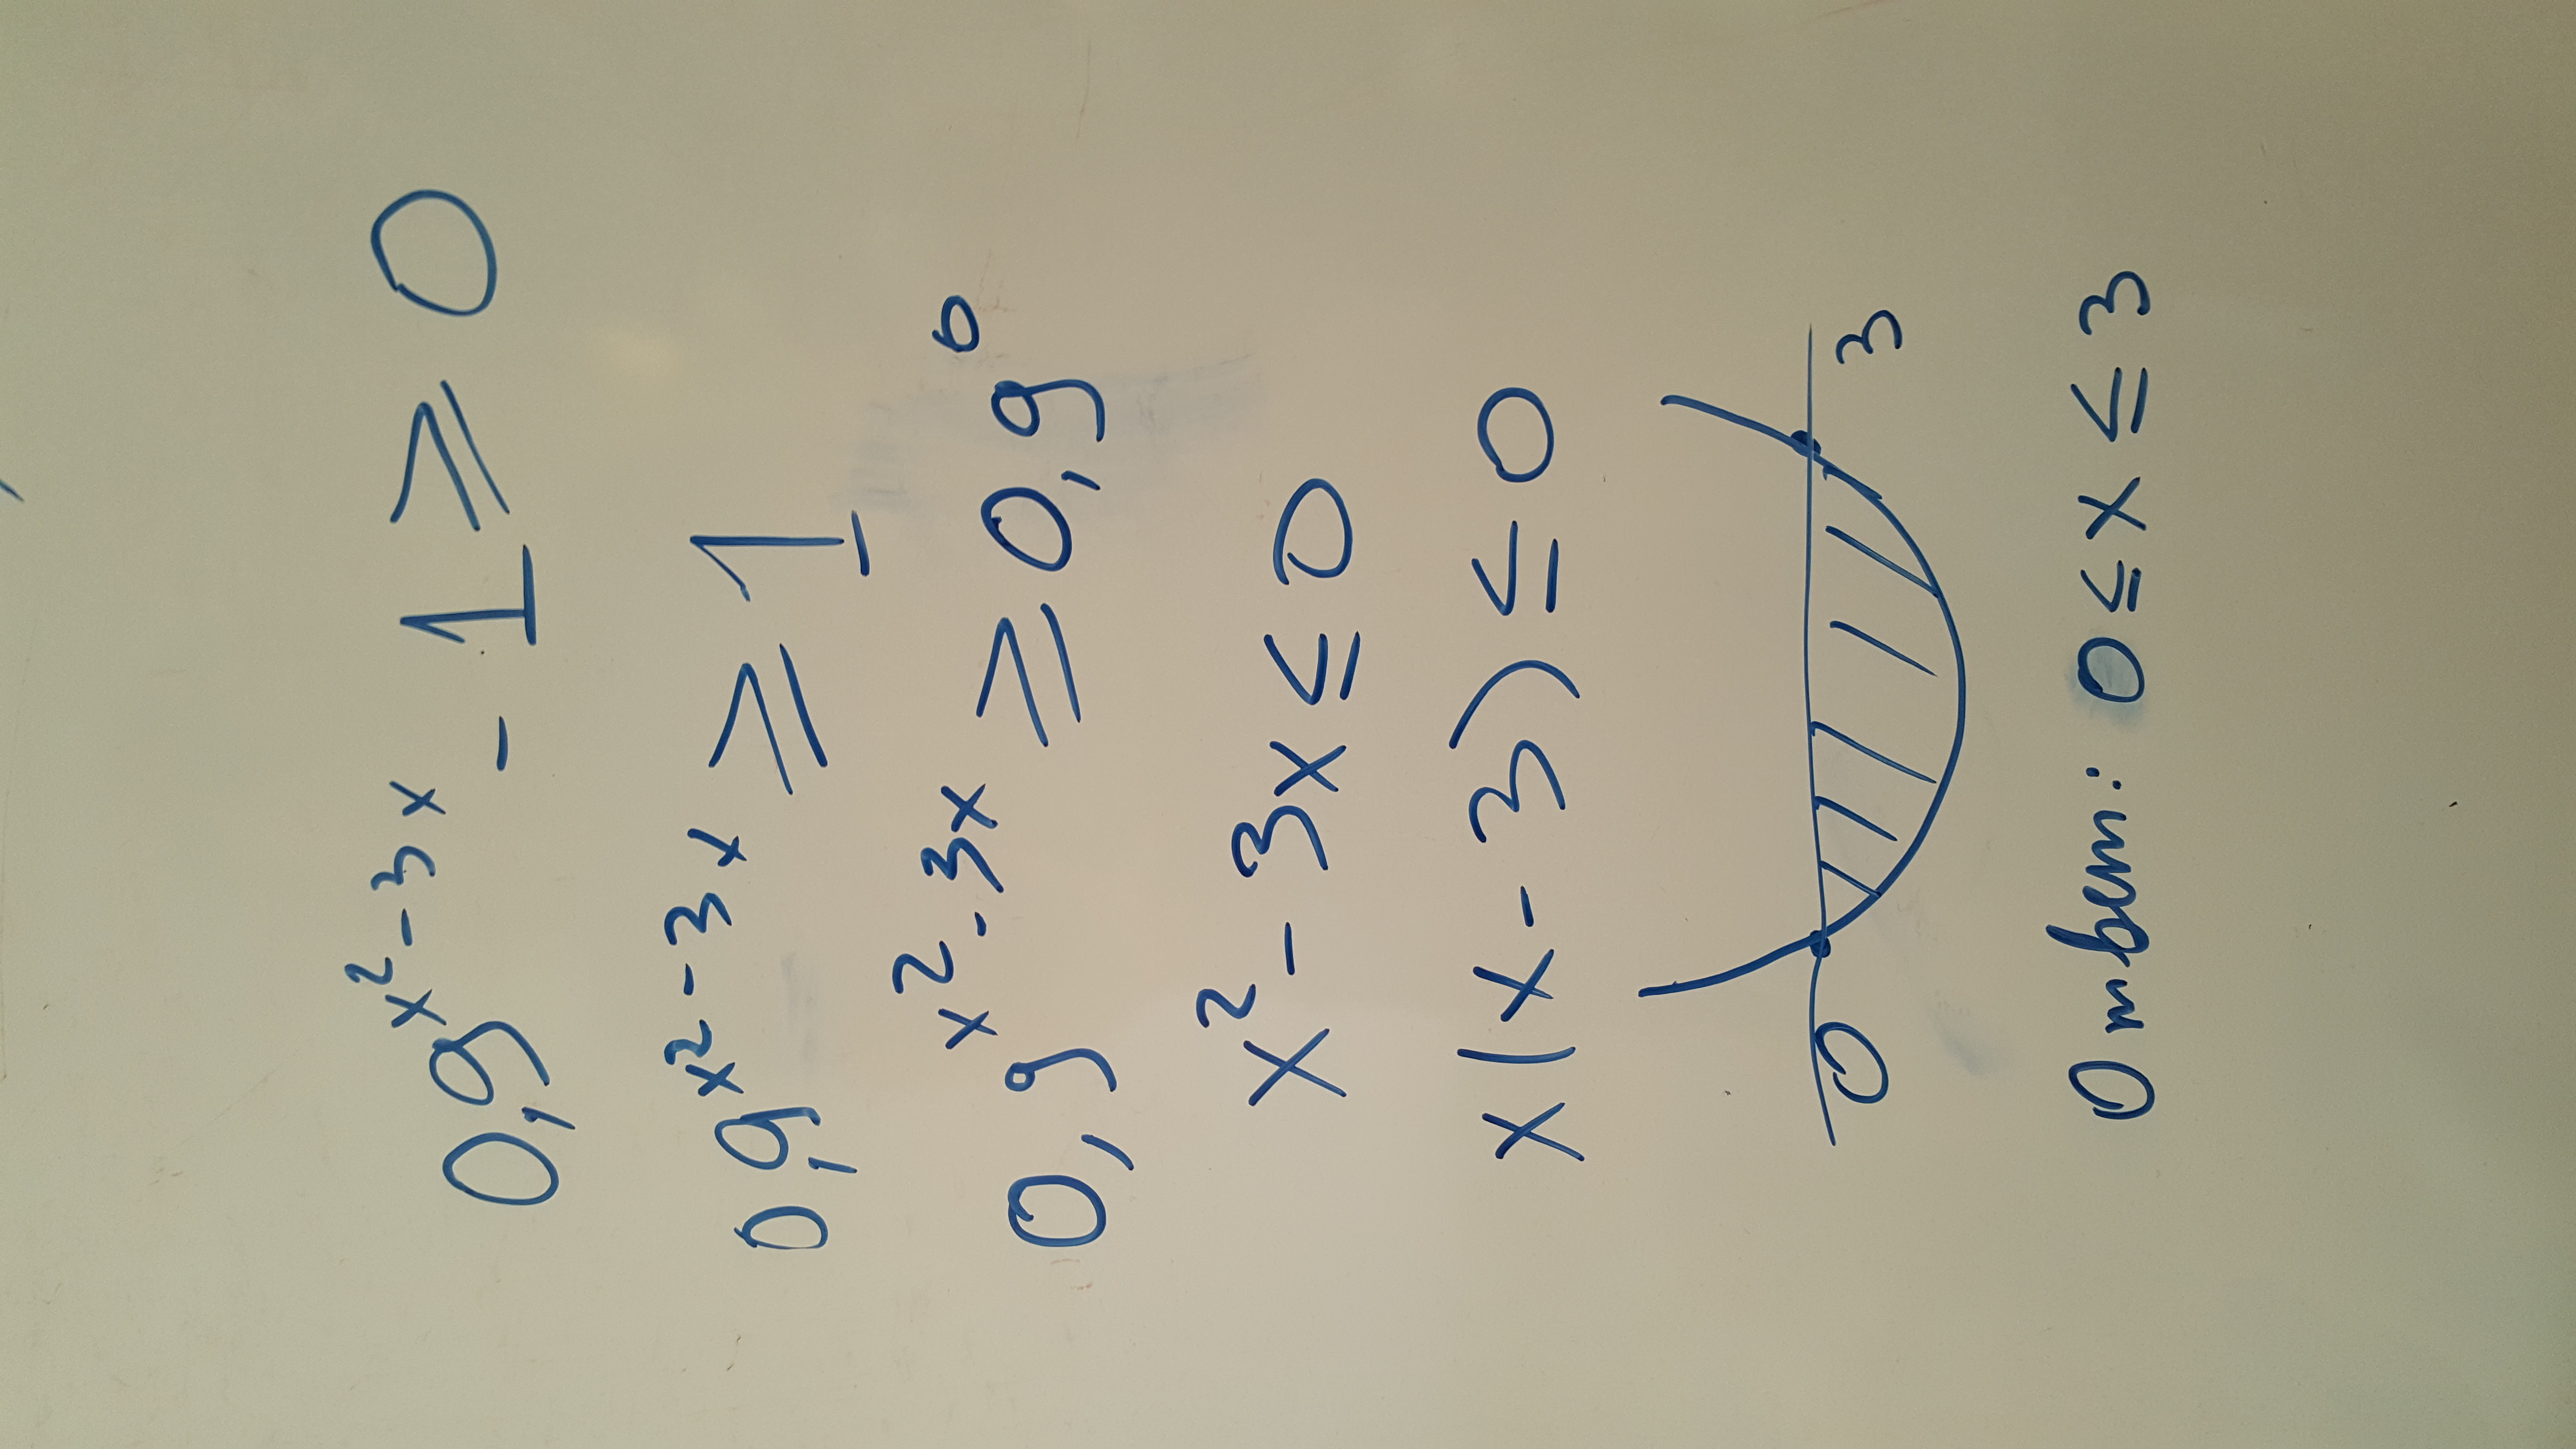 0,9^{x²-3x} - 1 ≥ 0
0,9^{x²-3x} ≥ 1
0,9^{x²-3x} ≥ 0,9^0
x² - 3x ≤ 0
x(x - 3) ≤ 0
0 3
Ответ: 0 ≤ x ≤ 3